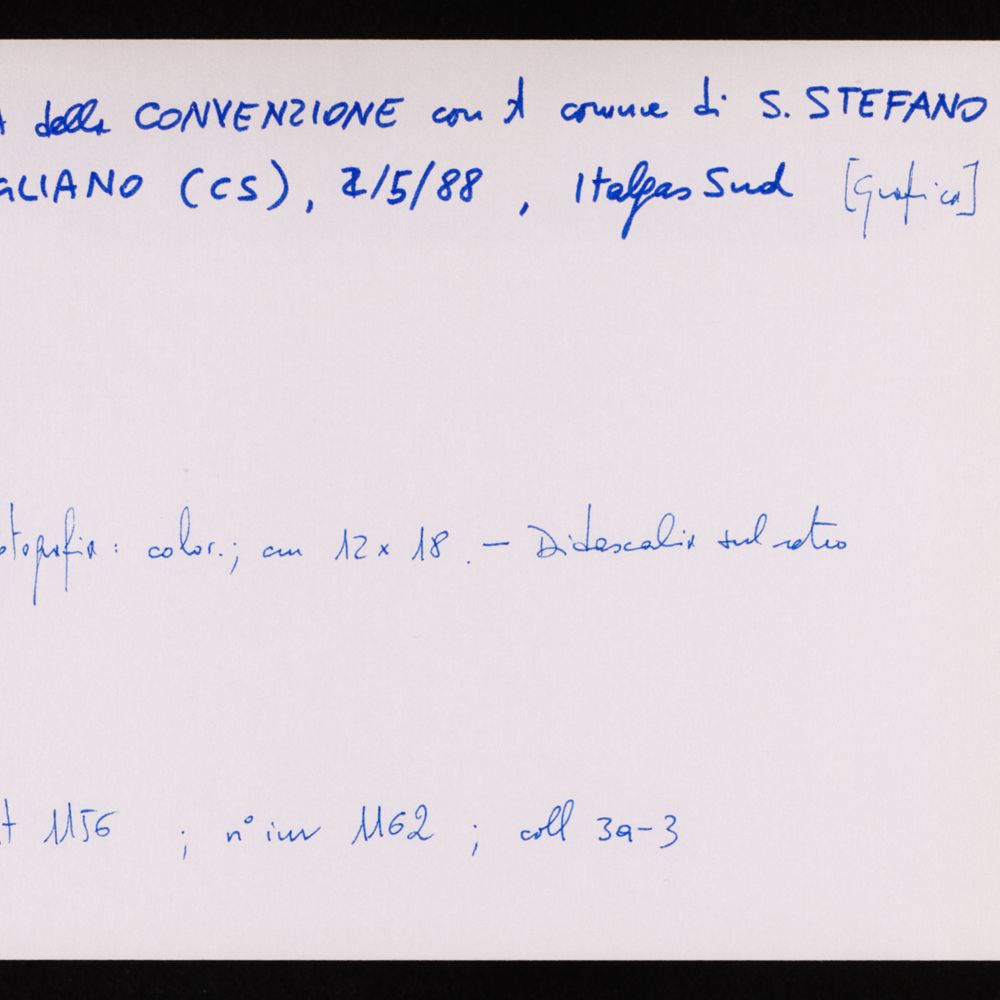 A della CONVENZIONE con il comune di S. STEFANO
GLIANO (CS), 2/5/88, Italgas Sud [Grafica]
otografia: color.; cm 12 x 18. - Didascalia sul retro
t 1156 ; n° inv 1162 ; coll 3a-3